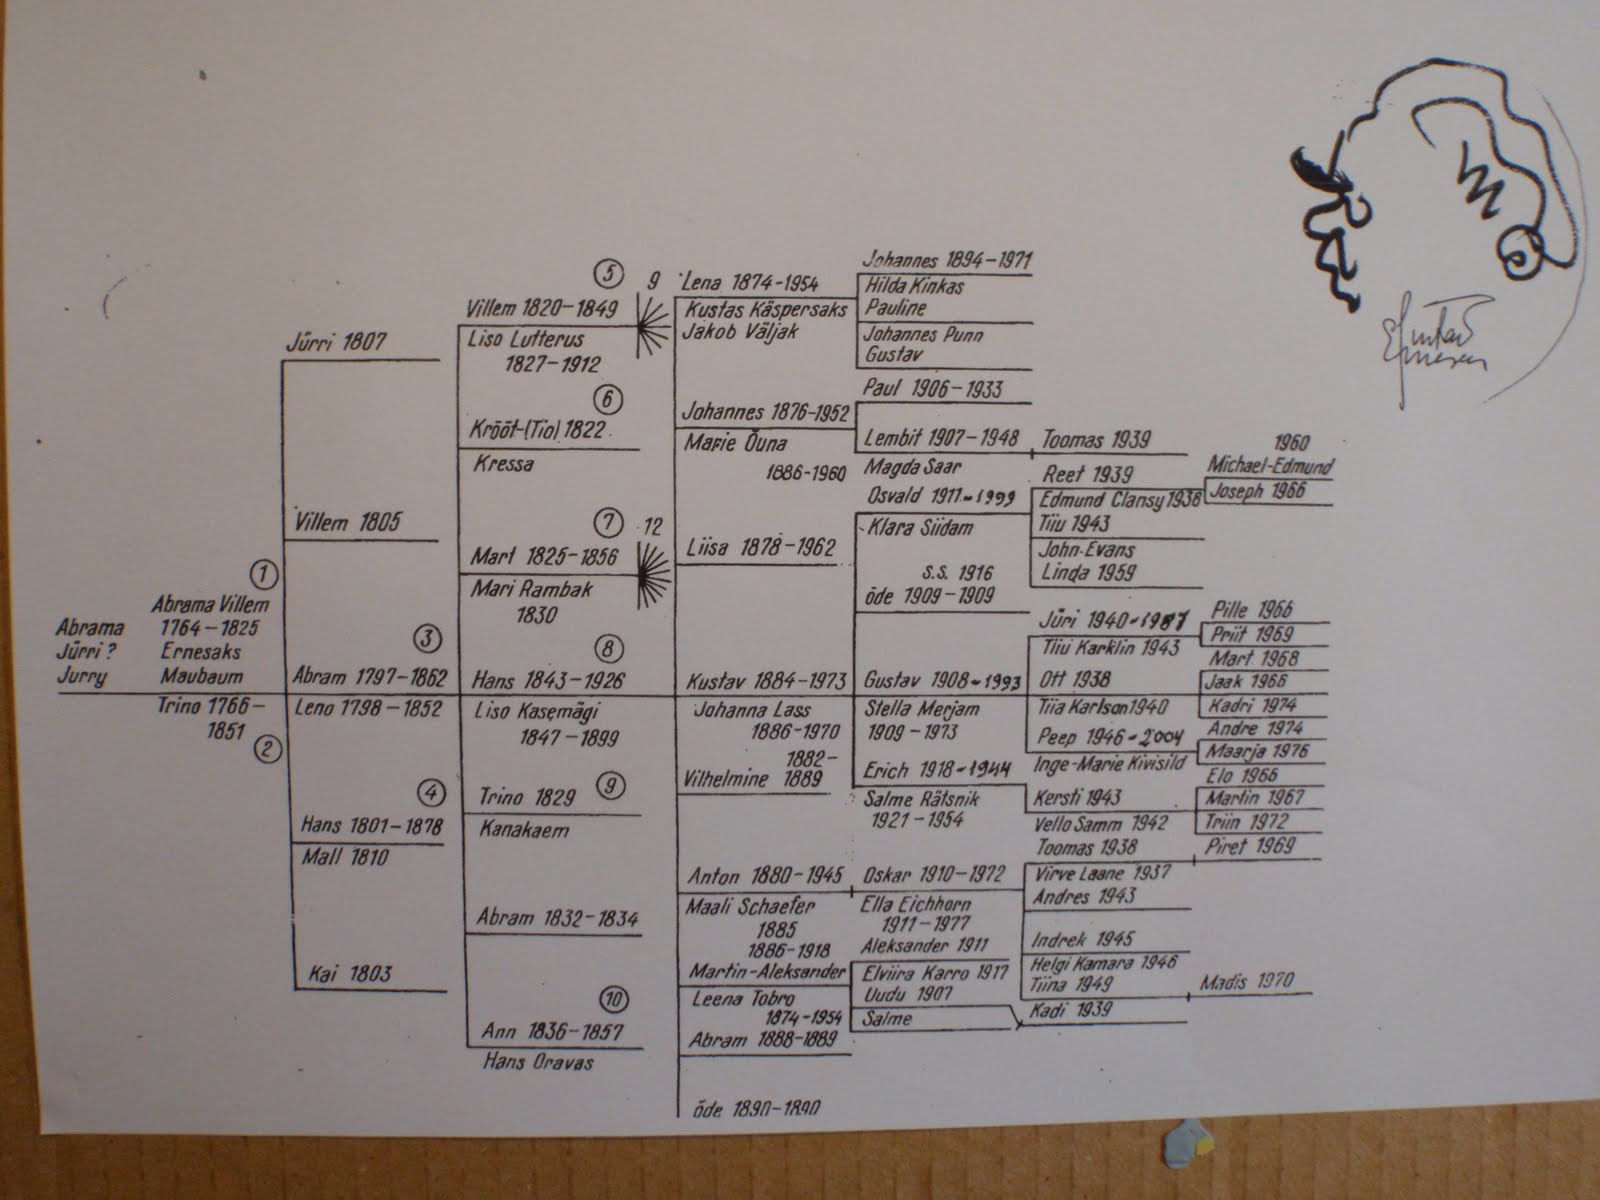 Abrama
Jürri ?
Jurry
1
Abrama Villem
1764-1825
Ernesaks
Maubaum
Trino 1766-
1851
2
Jürri 1807
Villem 1805
3
Abram 1797-1862
Leno 1798-1852
4
Hans 1801-1878
Mall 1810
Kai 1803
5
Villem 1820-1849
9
Liso Lutterus
1827-1912
6
Krõõt-(Tio) 1822
Kressa
7
12
Mart 1825-1856
Mari Rambak
1830
8
Hans 1843-1926
Liso Kasemägi
1847-1899
Trino 1829
9
Kanakaem
Abram 1832-1834
10
Ann 1836-1857
Hans Oravas
Lena 1874-1954
Kustas Käspersaks
Jakob Väljak
Johannes 1876-1952
Marie Õuna
1886-1960
Liisa 1878-1962
Kustav 1884-1973
Johanna Lass
1886-1970
1882-
Vilhelmine 1889
Anton 1880-1945
Maali Schaefer
1885
1886-1918
Martin-Aleksander
Leena Tobro
1874-1954
Abram 1888-1889
õde 1890-1890
Johannes 1894-1971
Hilda Kinkas
Pauline
Johannes Punn
Gustav
Paul 1906-1933
Lembit 1907-1948
Magda Saar
Osvald 1911-1999
Klara Siidam
s.s. 1916
õde 1909-1909
Gustav 1908-1993
Stella Merjam
1909-1973
Erich 1918-1944
Salme Rätsnik
1921-1954
Oskar 1910-1972
Ella Eichhorn
1911-1977
Aleksander 1911
Elviira Karro 1917
Uudu 1907
Salme
Toomas 1939
Reet 1939
Edmund Clansy 1938
Tiiu 1943
John Evans
Linda 1959
Jüri 1940-1987
Tiiu Karklin 1943
Ott 1938
Tiia Karlson 1940
Peep 1946-2004
Inge-Marie Kivisild
Kersti 1943
Vello Samm 1942
Toomas 1938
Virve Laane 1937
Andres 1943
Indrek 1945
Helgi Kamara 1946
Tiina 1949
Kadi 1939
1960
Michael-Edmund
Joseph 1966
Pille 1966
Priit 1969
Mart 1968
Jaak 1966
Kadri 1974
Andre 1974
Maarja 1976
Elo 1966
Martin 1967
Triin 1972
Piret 1969
Madis 1970